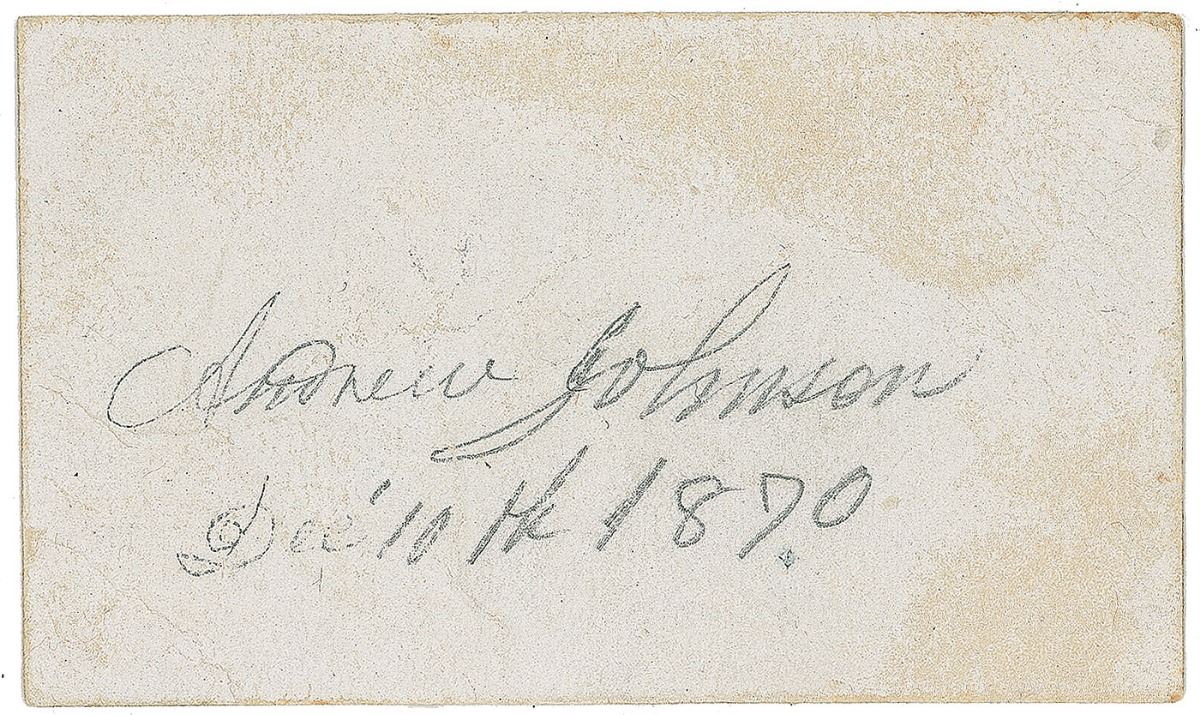 Andrew Johnson
Dec' 10 th 1870